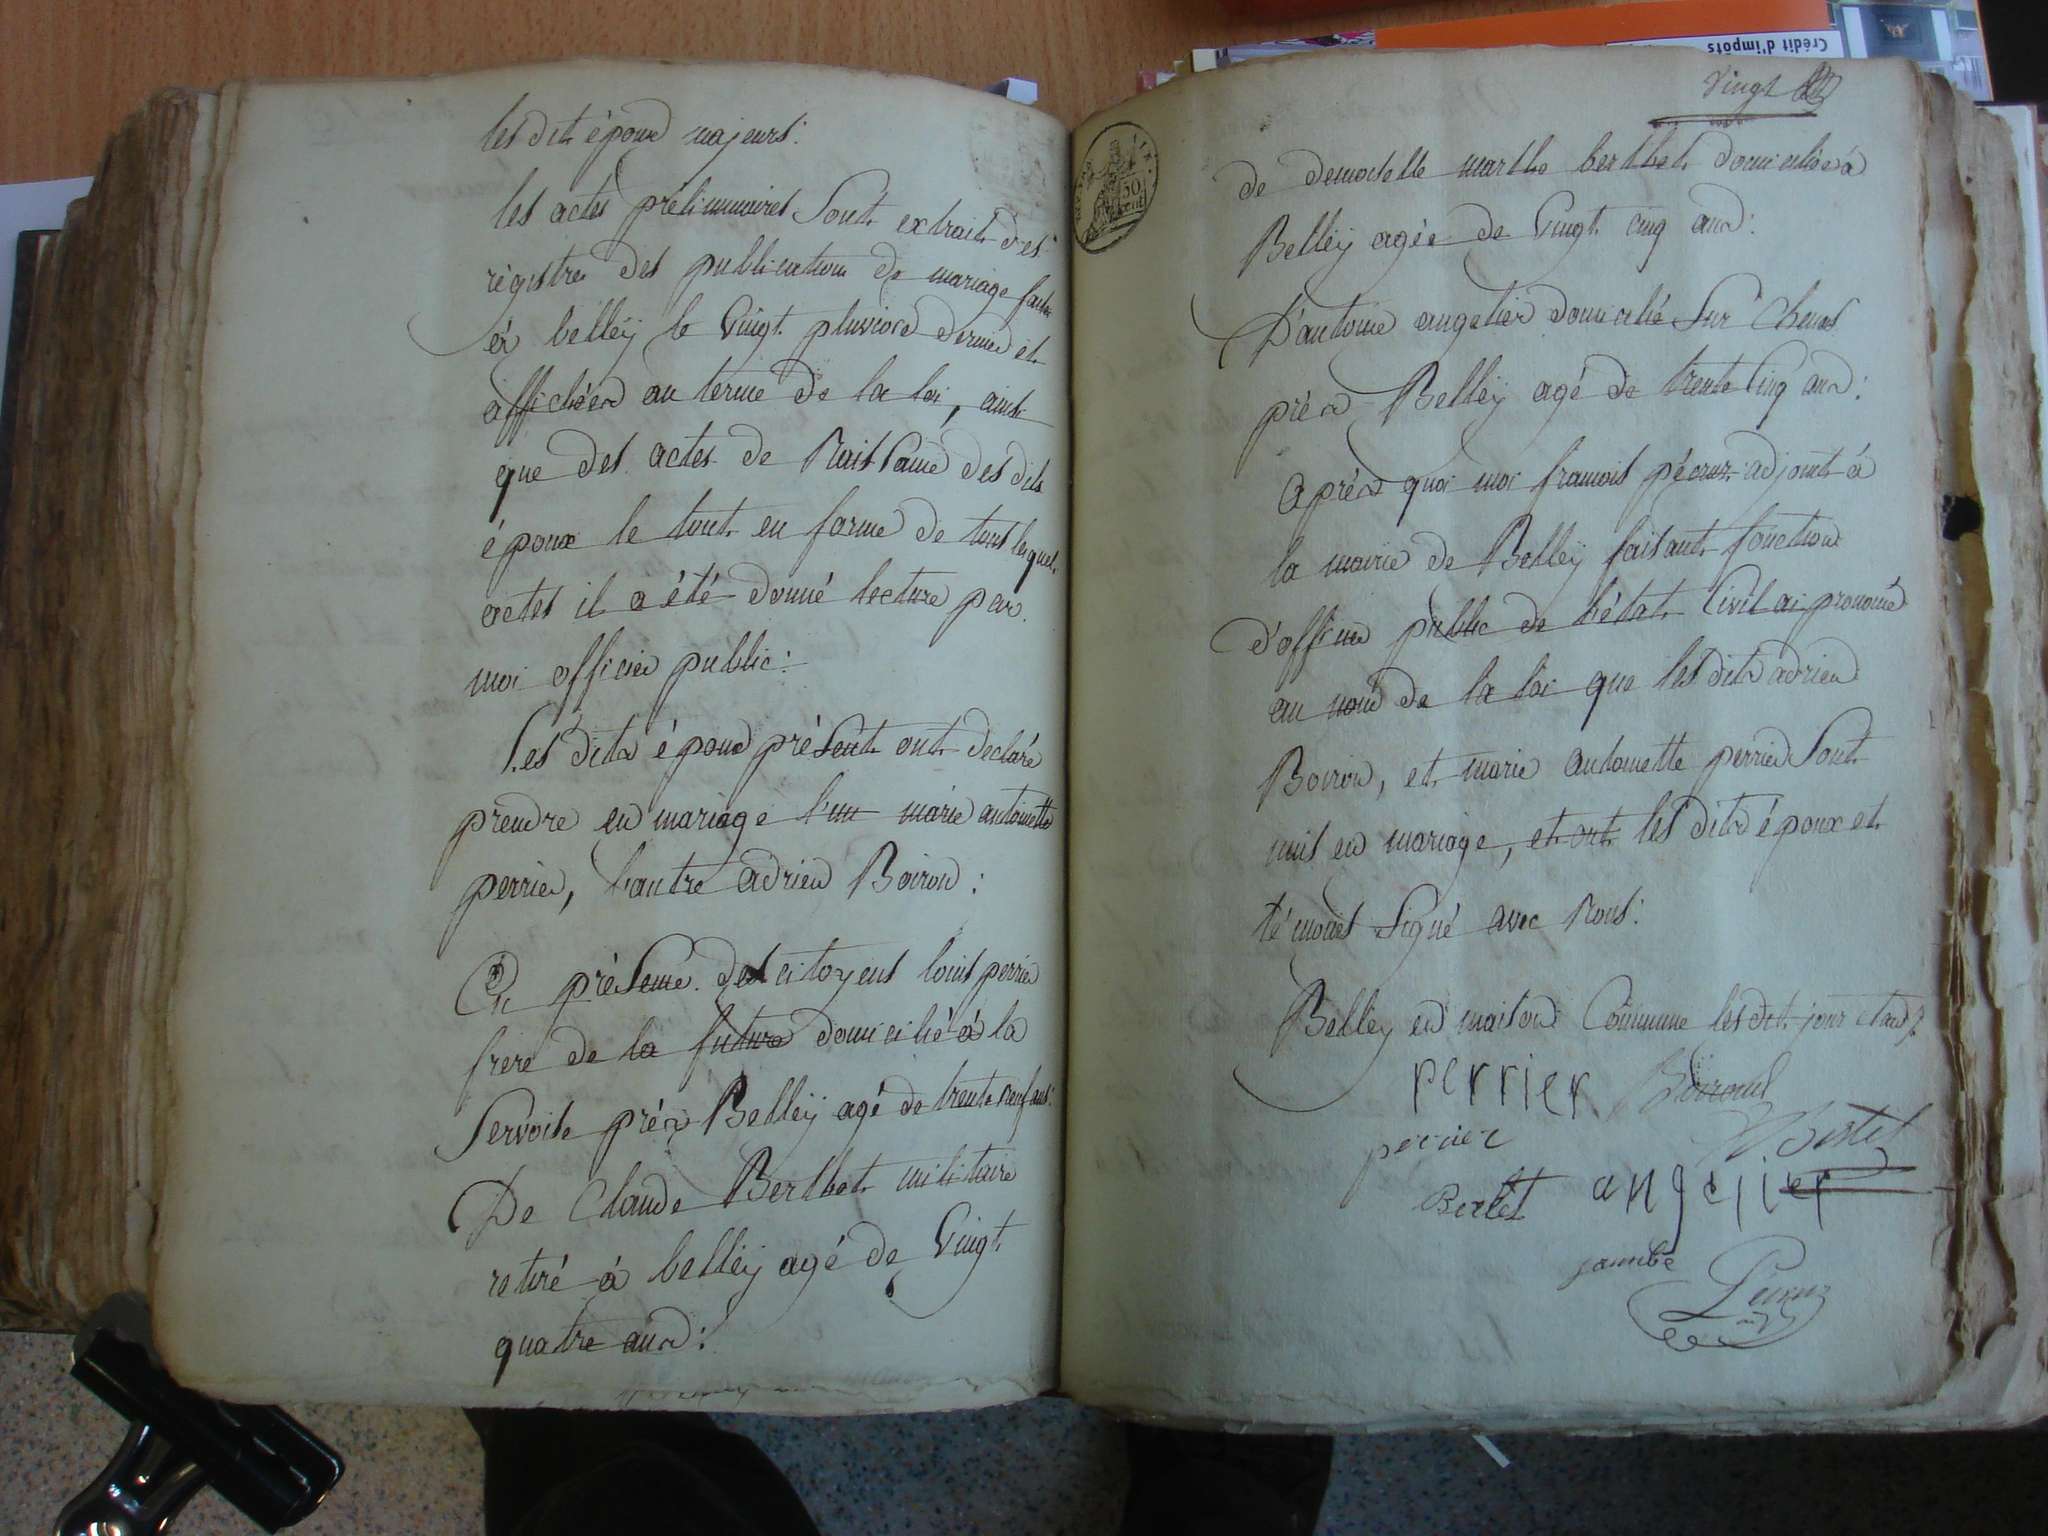 les dits époux majeurs:
les actes préliminaires Sont extrait des
régistres des publication de mariage faite
à belleÿ le Vingt pluviose dernier et
affichées au terme de la loi, ainsi
que des actes de Naissance des dits
époux le tout en forme de tous lesquels
actes il a été donné lecture par
moi officier public:
Les dits époux présent ont declaré
prendre en mariage l'un marie antoinette
perrier, l'autre adrien Boiron:
En présence des citoyens louis perrier
frere de la future domicilié à la
Servoise près Belleÿ agé de trente neuf ans:
De Claude Berthet militaire
retiré à belleÿ agé de Vingt
quatre ans:
Vingt
de demoiselle marthe berthet domiciliée à
Belleÿ agée de Vingt cinq ans:
D'antoine angelier domicilié Sur Chenas
près Belleÿ agé de trente Cinq ans:
après quoi moi francois pécruz adjoint à
la mairie de Belleÿ faisant fonction
d'officier public de l'état Civil ai prononcé
au nom de la loi que les dits adrien
Boiron, et marie antoinette perrier Sont
unis en mariage, et ont les dits époux et
témoins Signé avec Nous:
Belley en maison Commune les dit jour et an
perrier Boiron
perrier
Bertet angelier
jambe
30
Crédit d'impôts